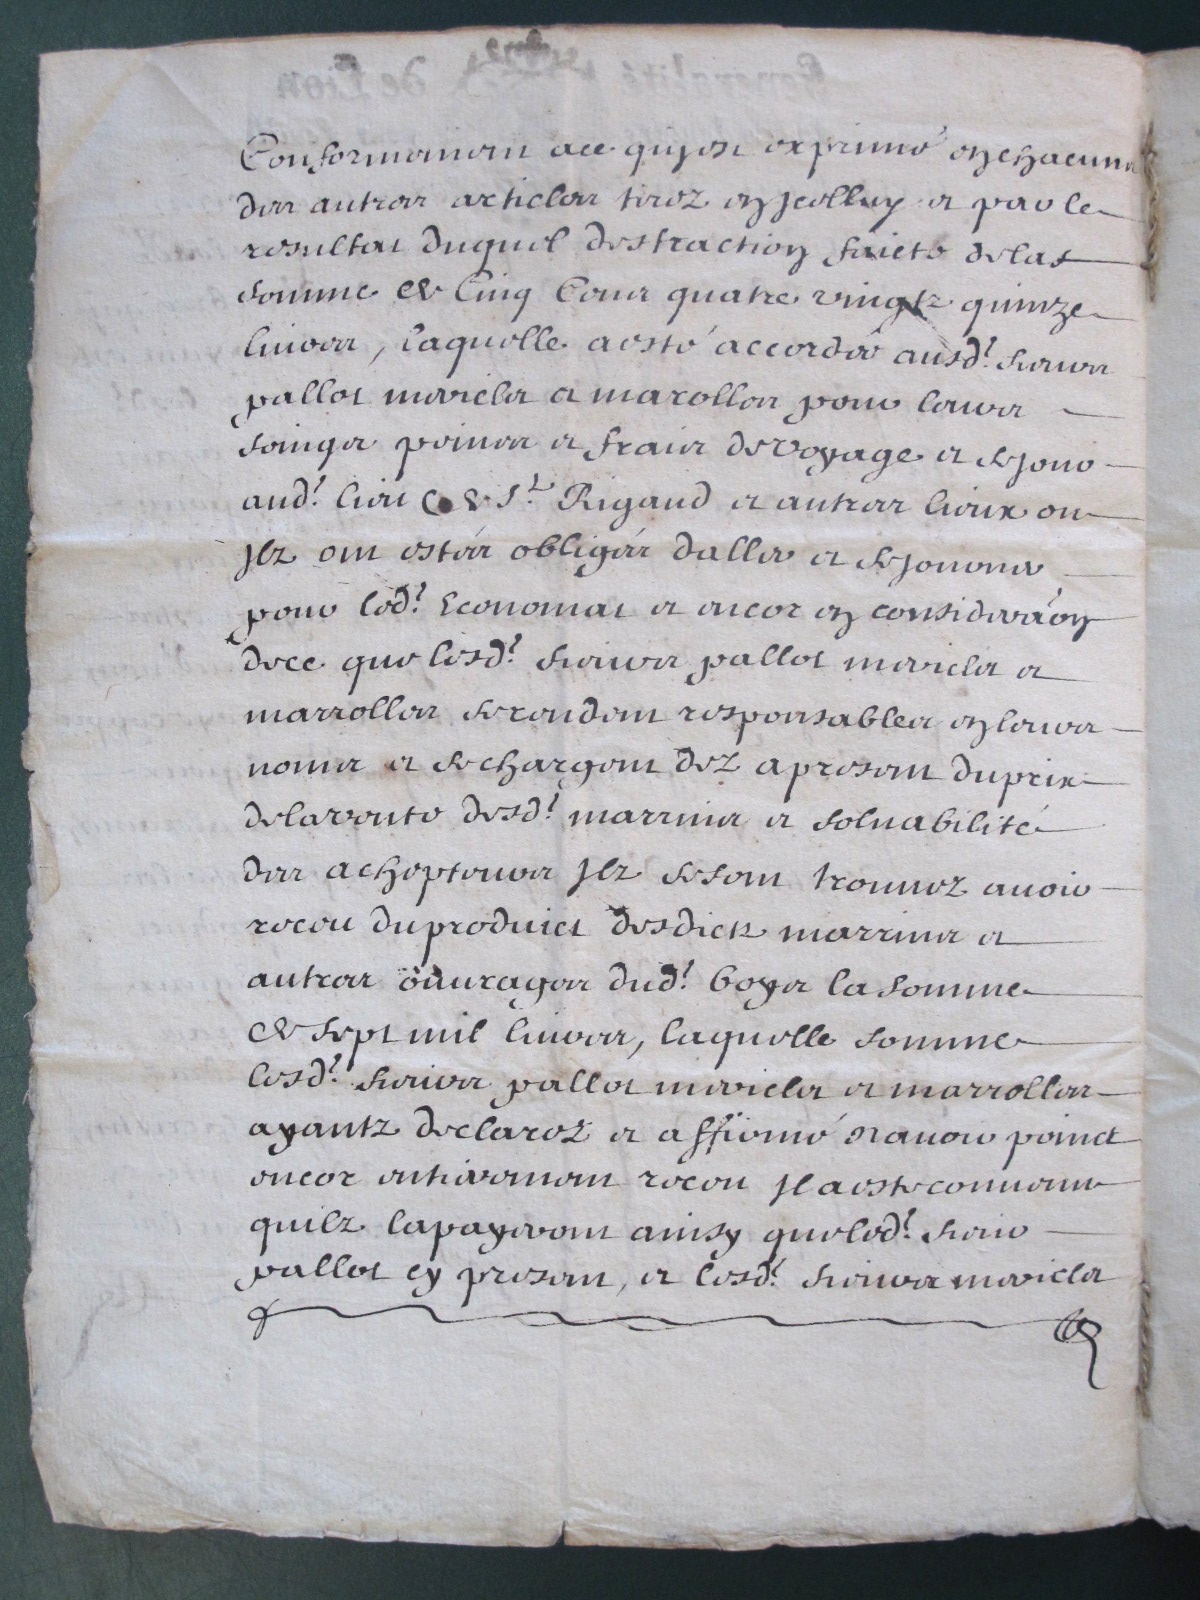 Conformement ace quyest exprimé en chacune
des autres articles tirez en jcelluy et par le
resultat duquel destraction faicte de las
somme de Cinq Cens quatre vingtz quinze
livres, laquelle aesté accordée ausd.t sieurs
pallot mericles et marolles pour leurs
soinges peines et frais devoyage et sejour
aud.t lieu de S.t Rigaud et autres lieux ou
jlz ont estés obligés daller et sejourner
pour led.t Economat et encor en considerãon
dece que lesd.t sieurs pallot mericles et
marrolles serendent responsables en leurs
noms et sechargent dez apresent duprix
delavente desd.t marrins et soluabilité
des achepteurs jlz sesont trouuez auoir
receu duproduict desdictz marrins et
autres ouurages dud.t boys la somme
de sept mil livres, laquelle somme
lesd.t sieurs pallot mericles et marrolles
ayantz declarez et affirmé Nauoir poinct
encor entierement receu jl aeste conuenu
quilz lapayeront ainsy que led.t sieur
pallot cy present, et lesd.t sieurs mericles
Generalité de Lion